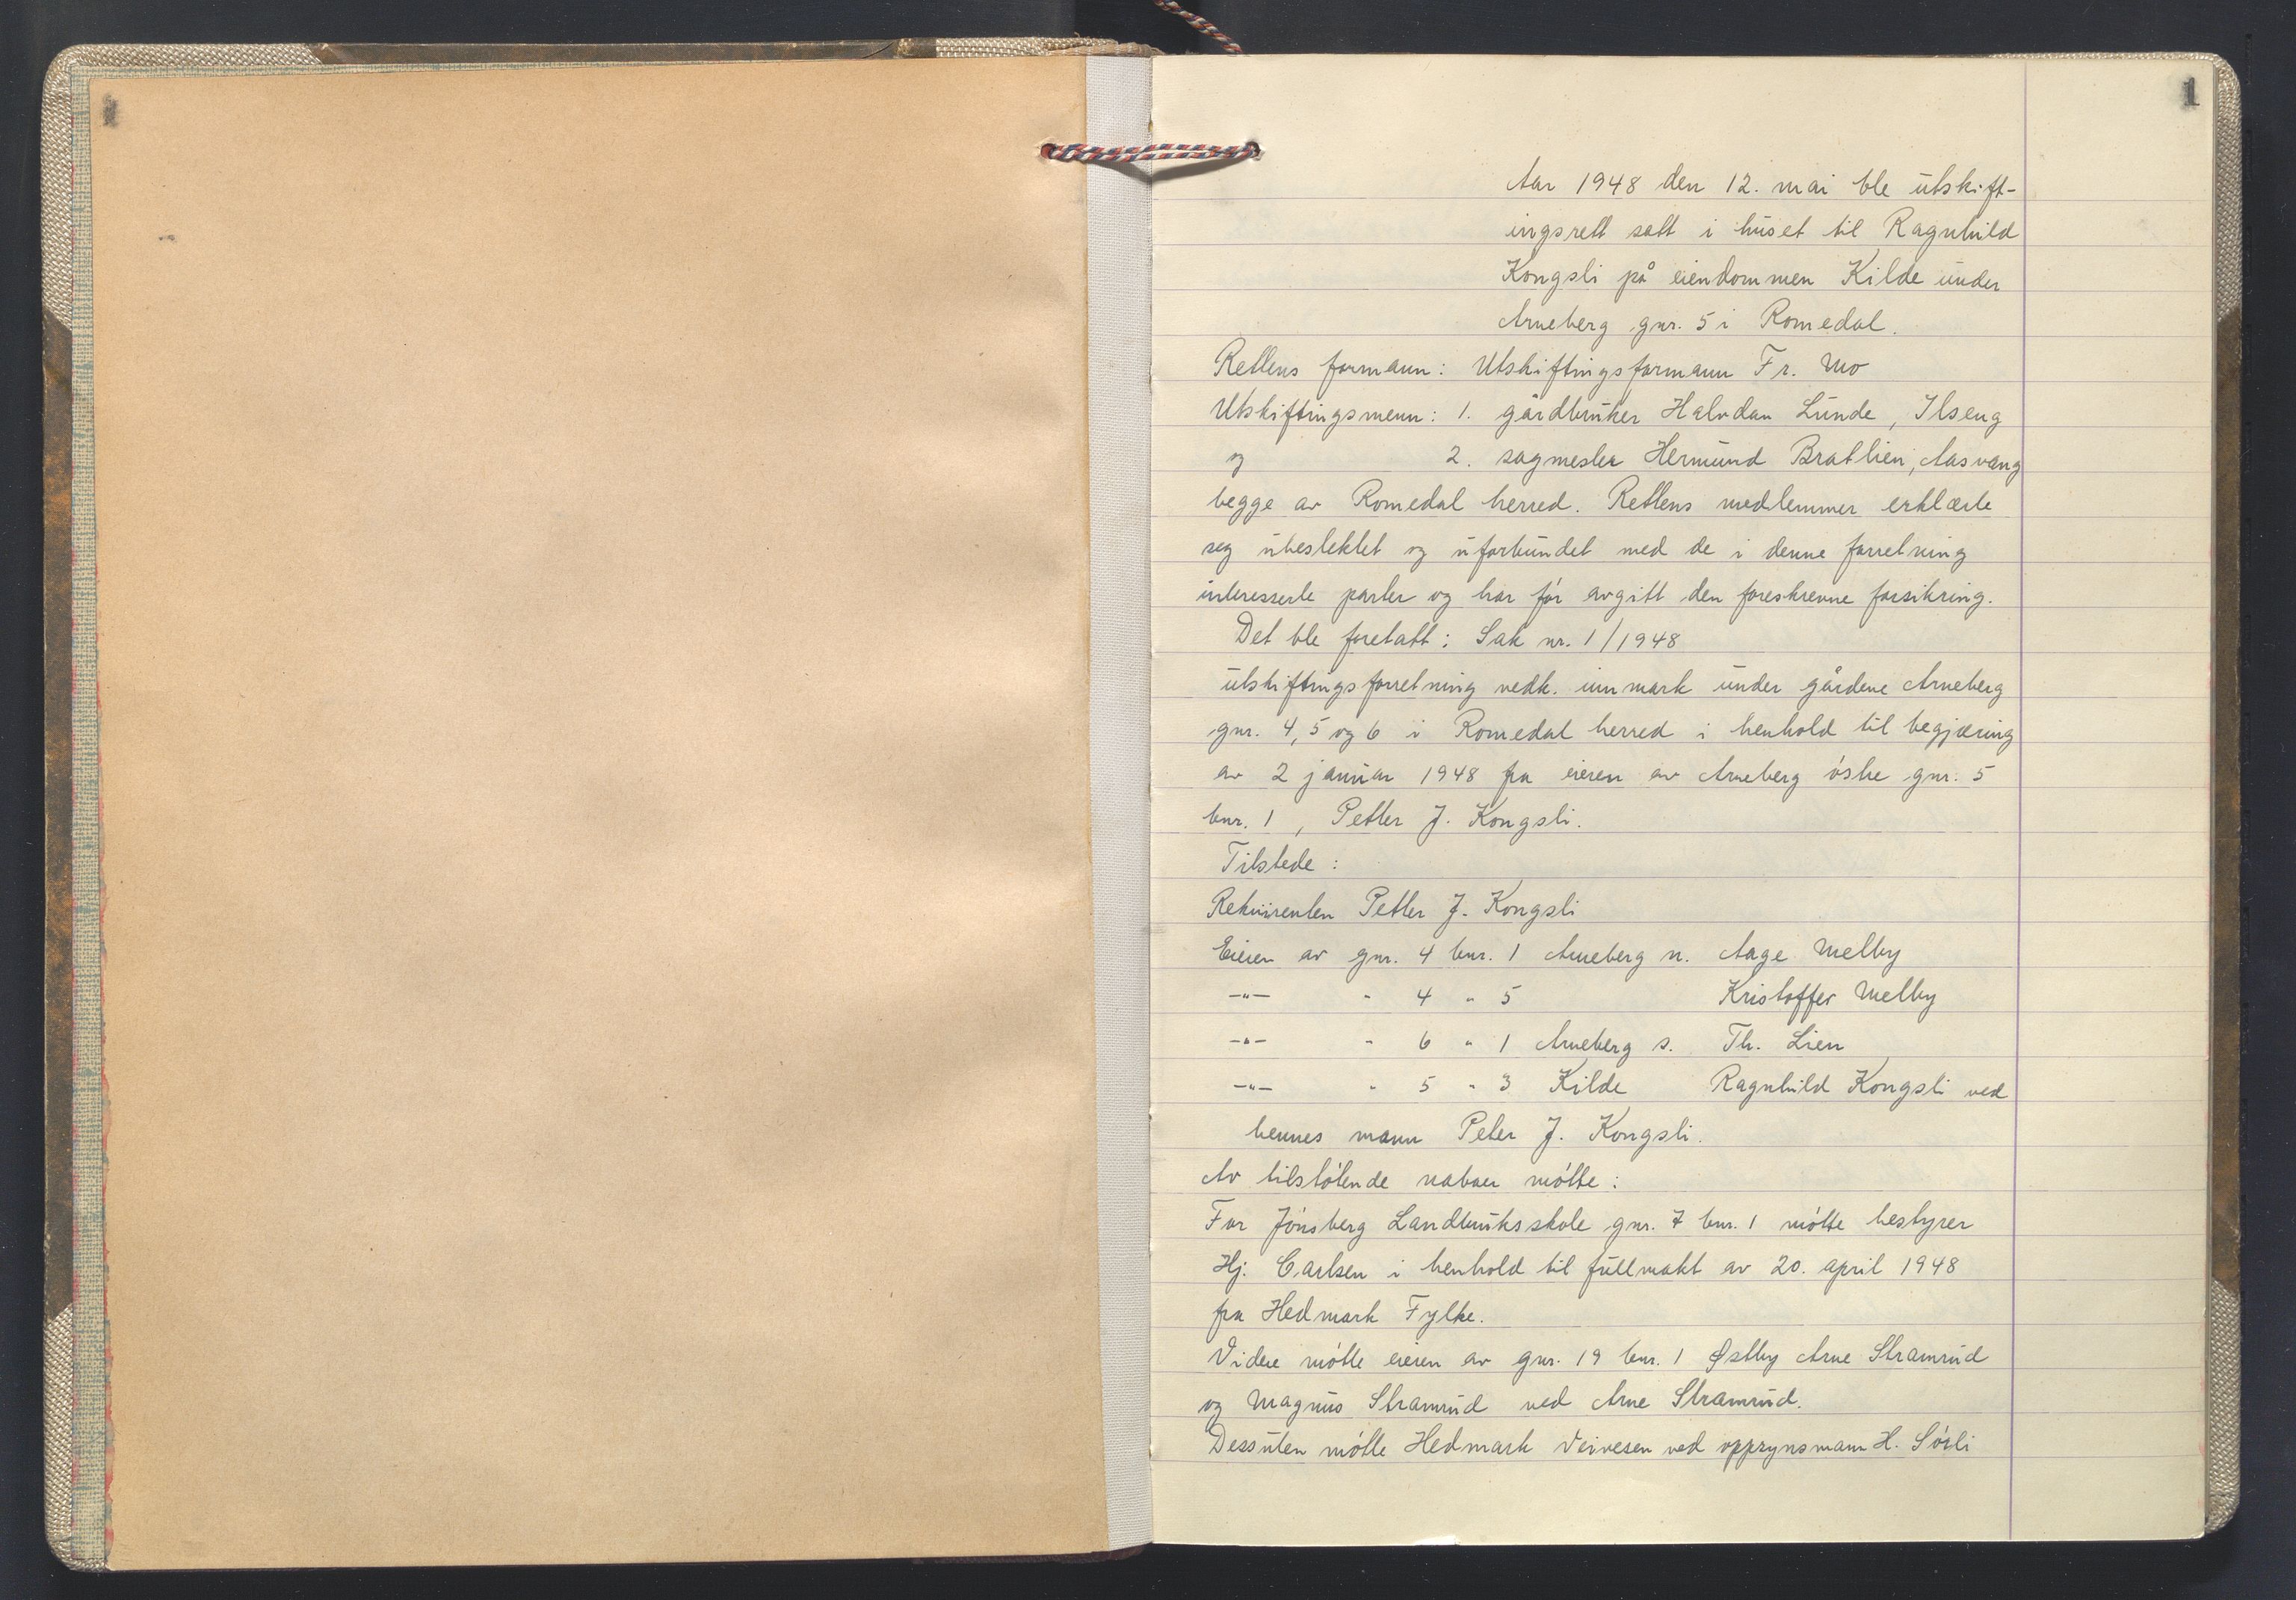 1
Aar 1948 den 12. mai ble utskift-
ingsrett satt i huset til Ragnhild
Kongsli på eiendommen Kilde under
Arneberg gnr. 5 i Romedal.
Rettens formann: Utskiftingsformann Fr. Mo
Utskiftingsmenn: 1. gårdbruker Halvdan Lunde, Ilseng
og 2. sagmester Hermund Bratlien, Aasvang
begge av Romedal herred. Rettens medlemmer erklærte
seg ubeslektet og uforbundet med de i denne forretning
interesserte parter og har før avgitt den foreskrevne forsikring.
Det ble foretatt: Sak nr. 1/1948
utskiftingsforretning vedk. innmark under gårdene Arneberg
gnr. 4, 5 og 6 i Romedal herred i henhold til begjæring
av 2 januar 1948 fra eieren av Arneberg østre gnr. 5
bnr. 1, Petter J. Kongsli.
Tilstede:
Rekvirenten Petter J. Kongsli
Eieren av gnr. 4 bnr. 1 Arneberg n. Aage Melby
—"— " 4 " 5 Kristoffer Melby
—"— " 6 " 1 Arneberg s. Th. Lien
—"— " 5 " 3 Kilde Ragnhild Kongsli ved
hennes mann Peter J. Kongsli.
Av tilstøtende naboer møtte:
For Jønsberg Landbruksskole gnr. 7 bnr. 1 møtte bestyrer
Hj. Carlsen i henhold til fullmakt av 20. april 1948
fra Hedmark Fylke.
Videre møtte eieren av gnr. 19 bnr. 1 Østby Arne Stramrud
og Magnus Stramrud ved Arne Stramrud.
Dessuten møtte Hedmark Veivesen ved oppsynsmann H. Sørli